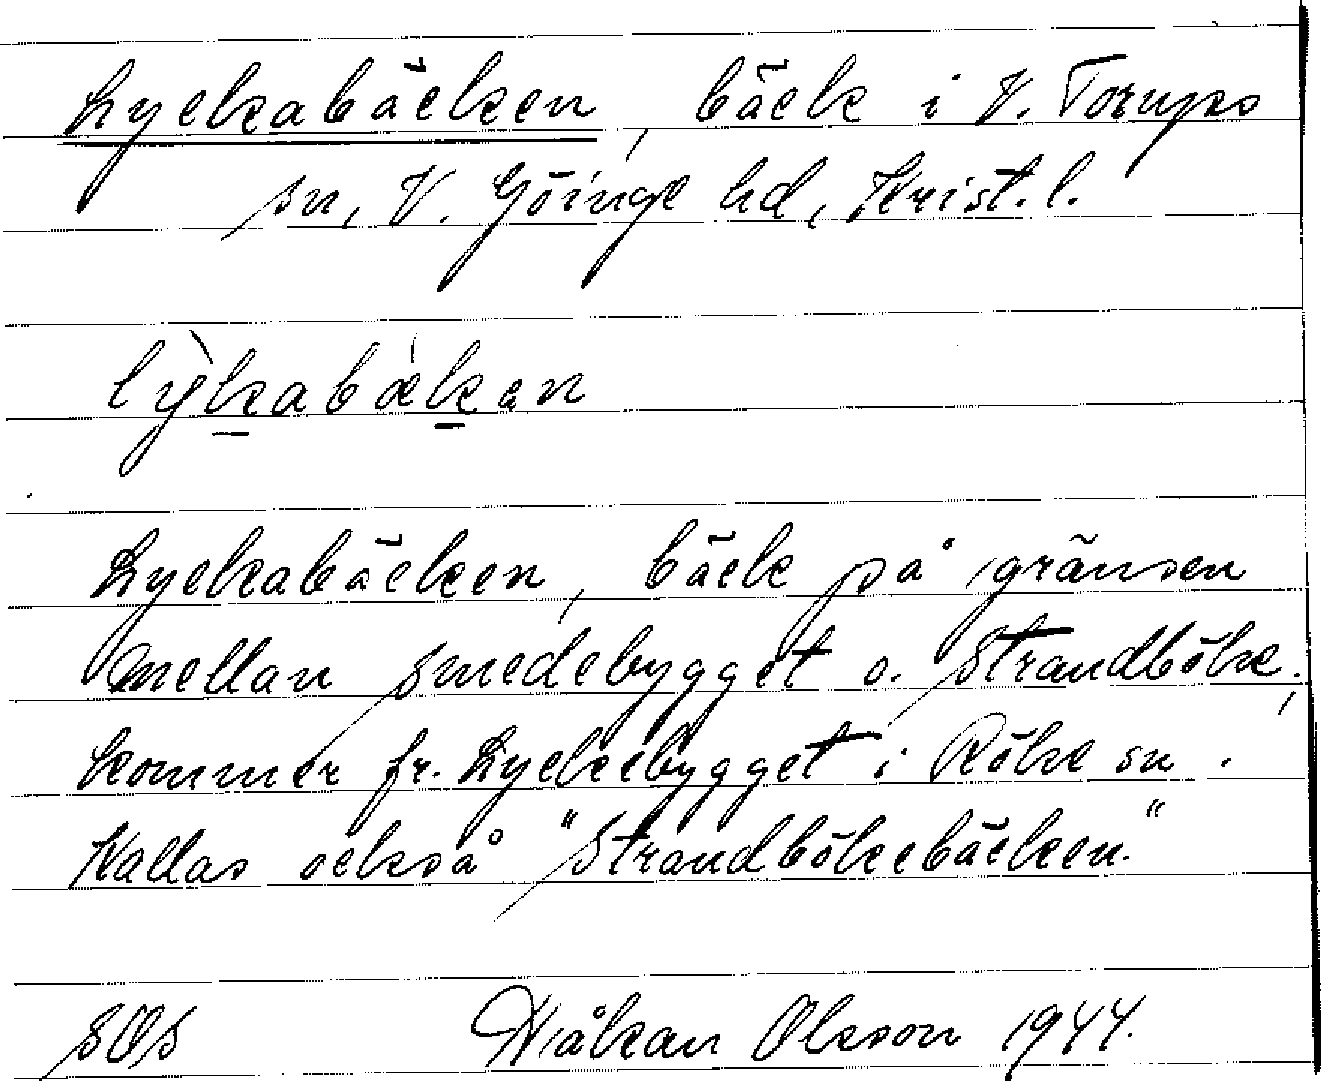 Lyckabäcken, bäck i V. Torups
sn, V. Göinge hd, Krist. l.
lỳkabǽkan
Lyckabäcken, bäck på gränsen
mellan Smedebygget o. Strandböke;
kommer fr. Lyckebygget i Röke sn.
Kallas också "Strandbökebäcken."
SOS Håkan Olsson 1944.